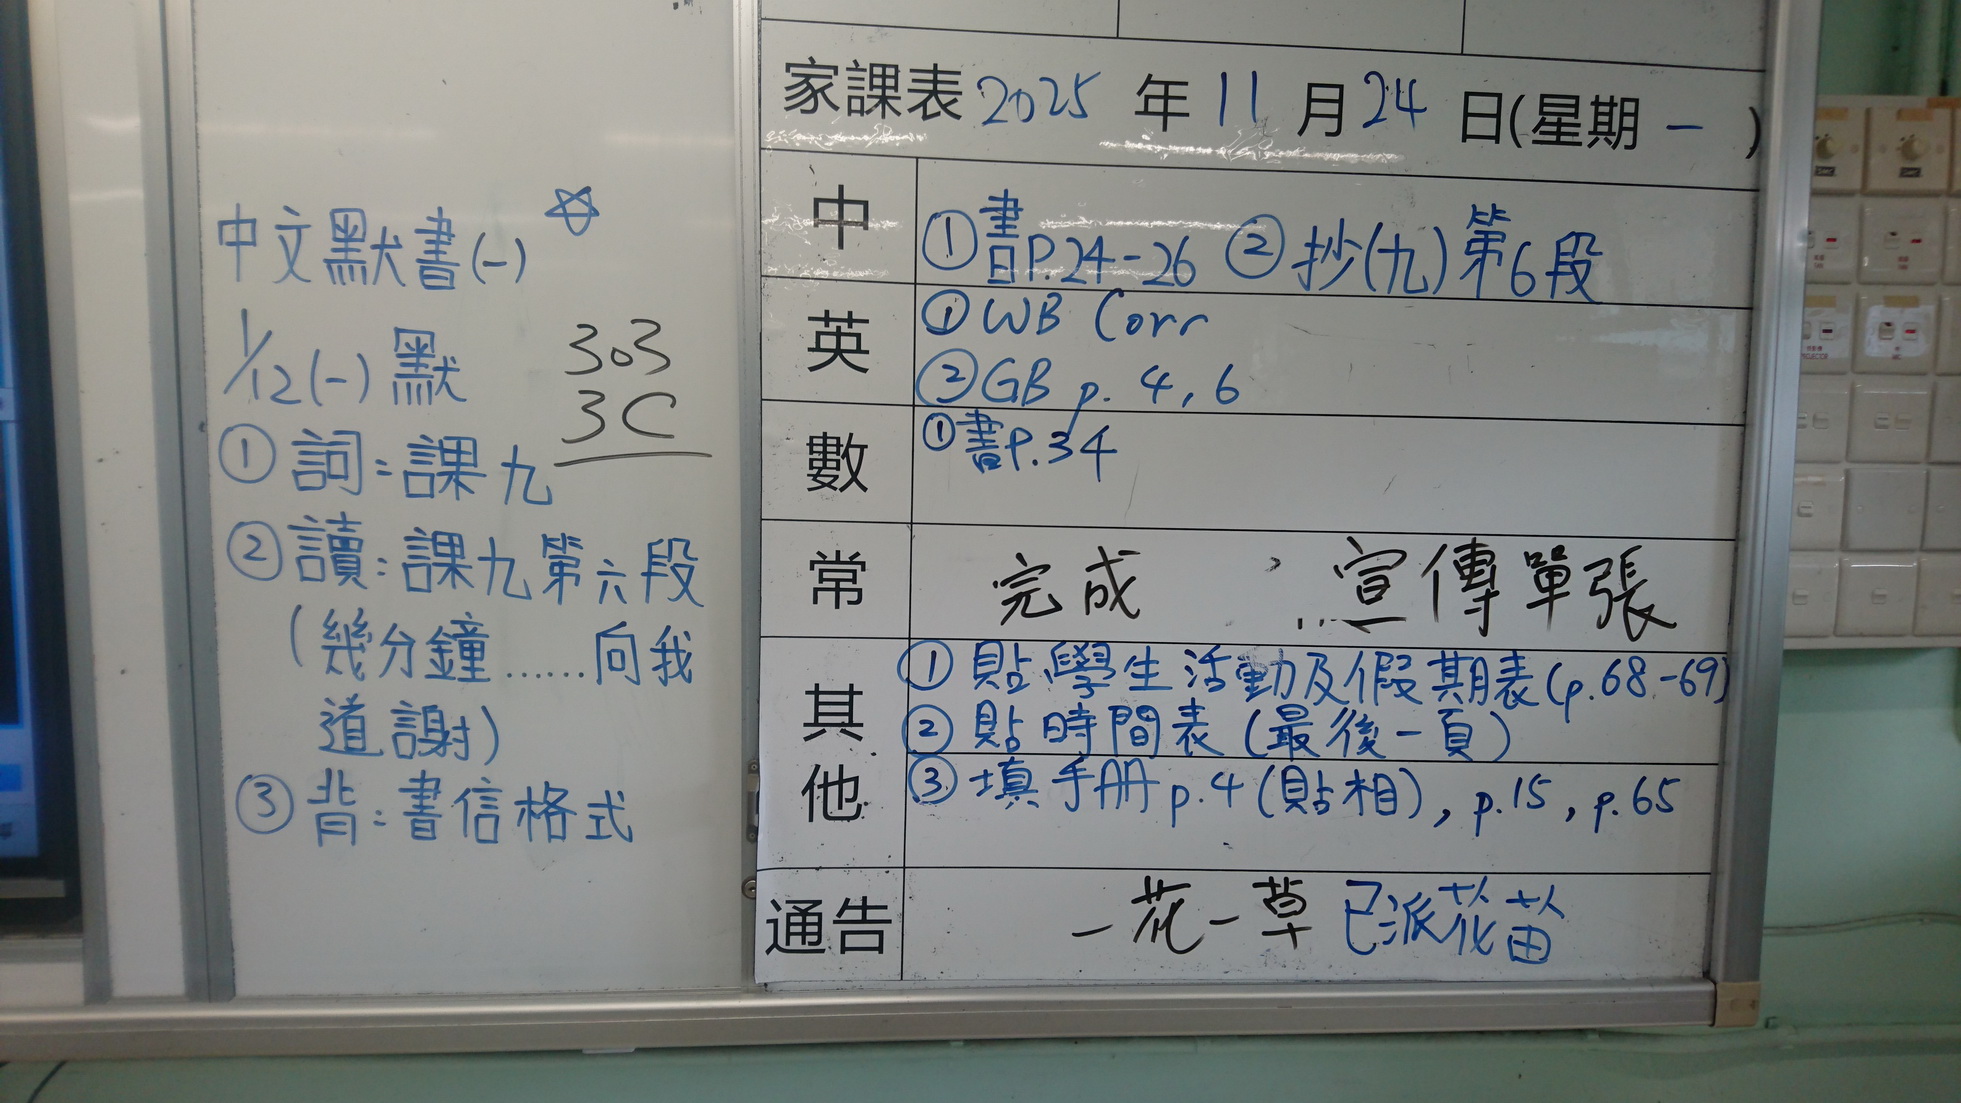 中文默書(一)
1/12(一)默
303
3C
① 詞:課九
② 讀:課九第六段
(幾分鐘……向我
道謝)
③ 背:書信格式
家課表 2025 年 11 月 24 日(星期 一 )
中 ①書P.24-26 ②抄(九)第6段
英 ①WB Corr
②GB p. 4, 6
數 ①書P.34
常 完成 宣傳單張
其他 ① 貼學生活動及假期表(p.68-69)
② 貼時間表(最後一頁)
③ 填手冊p.4(貼相), p.15, p.65
通告 一花一草 已派花苗